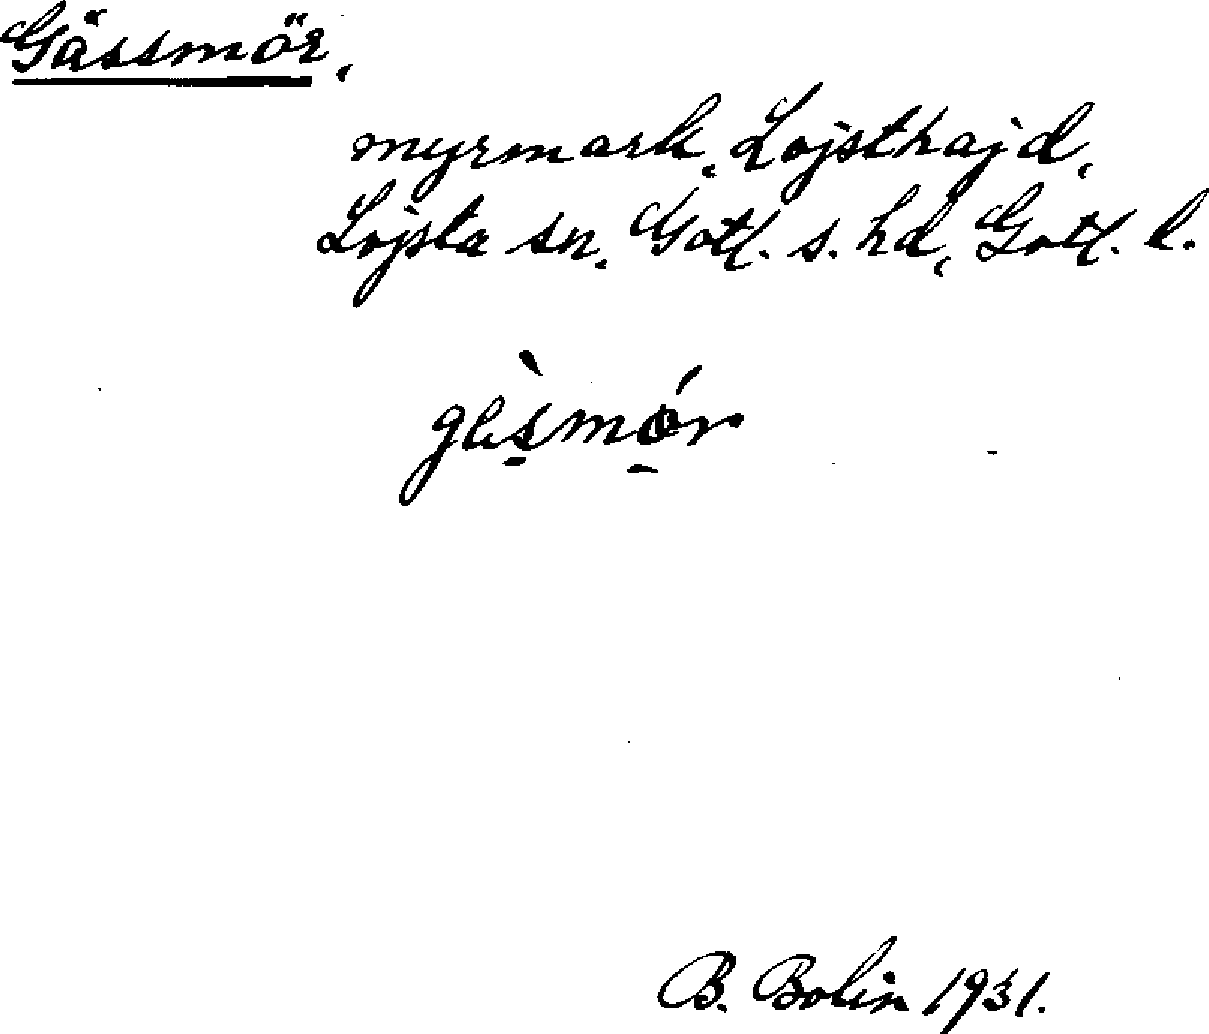 Gässmör,
myrmark, Lojsthajd,
Lojsta sn, Gotl. s. hd, Gotl. l.
B. Bolin 1931.